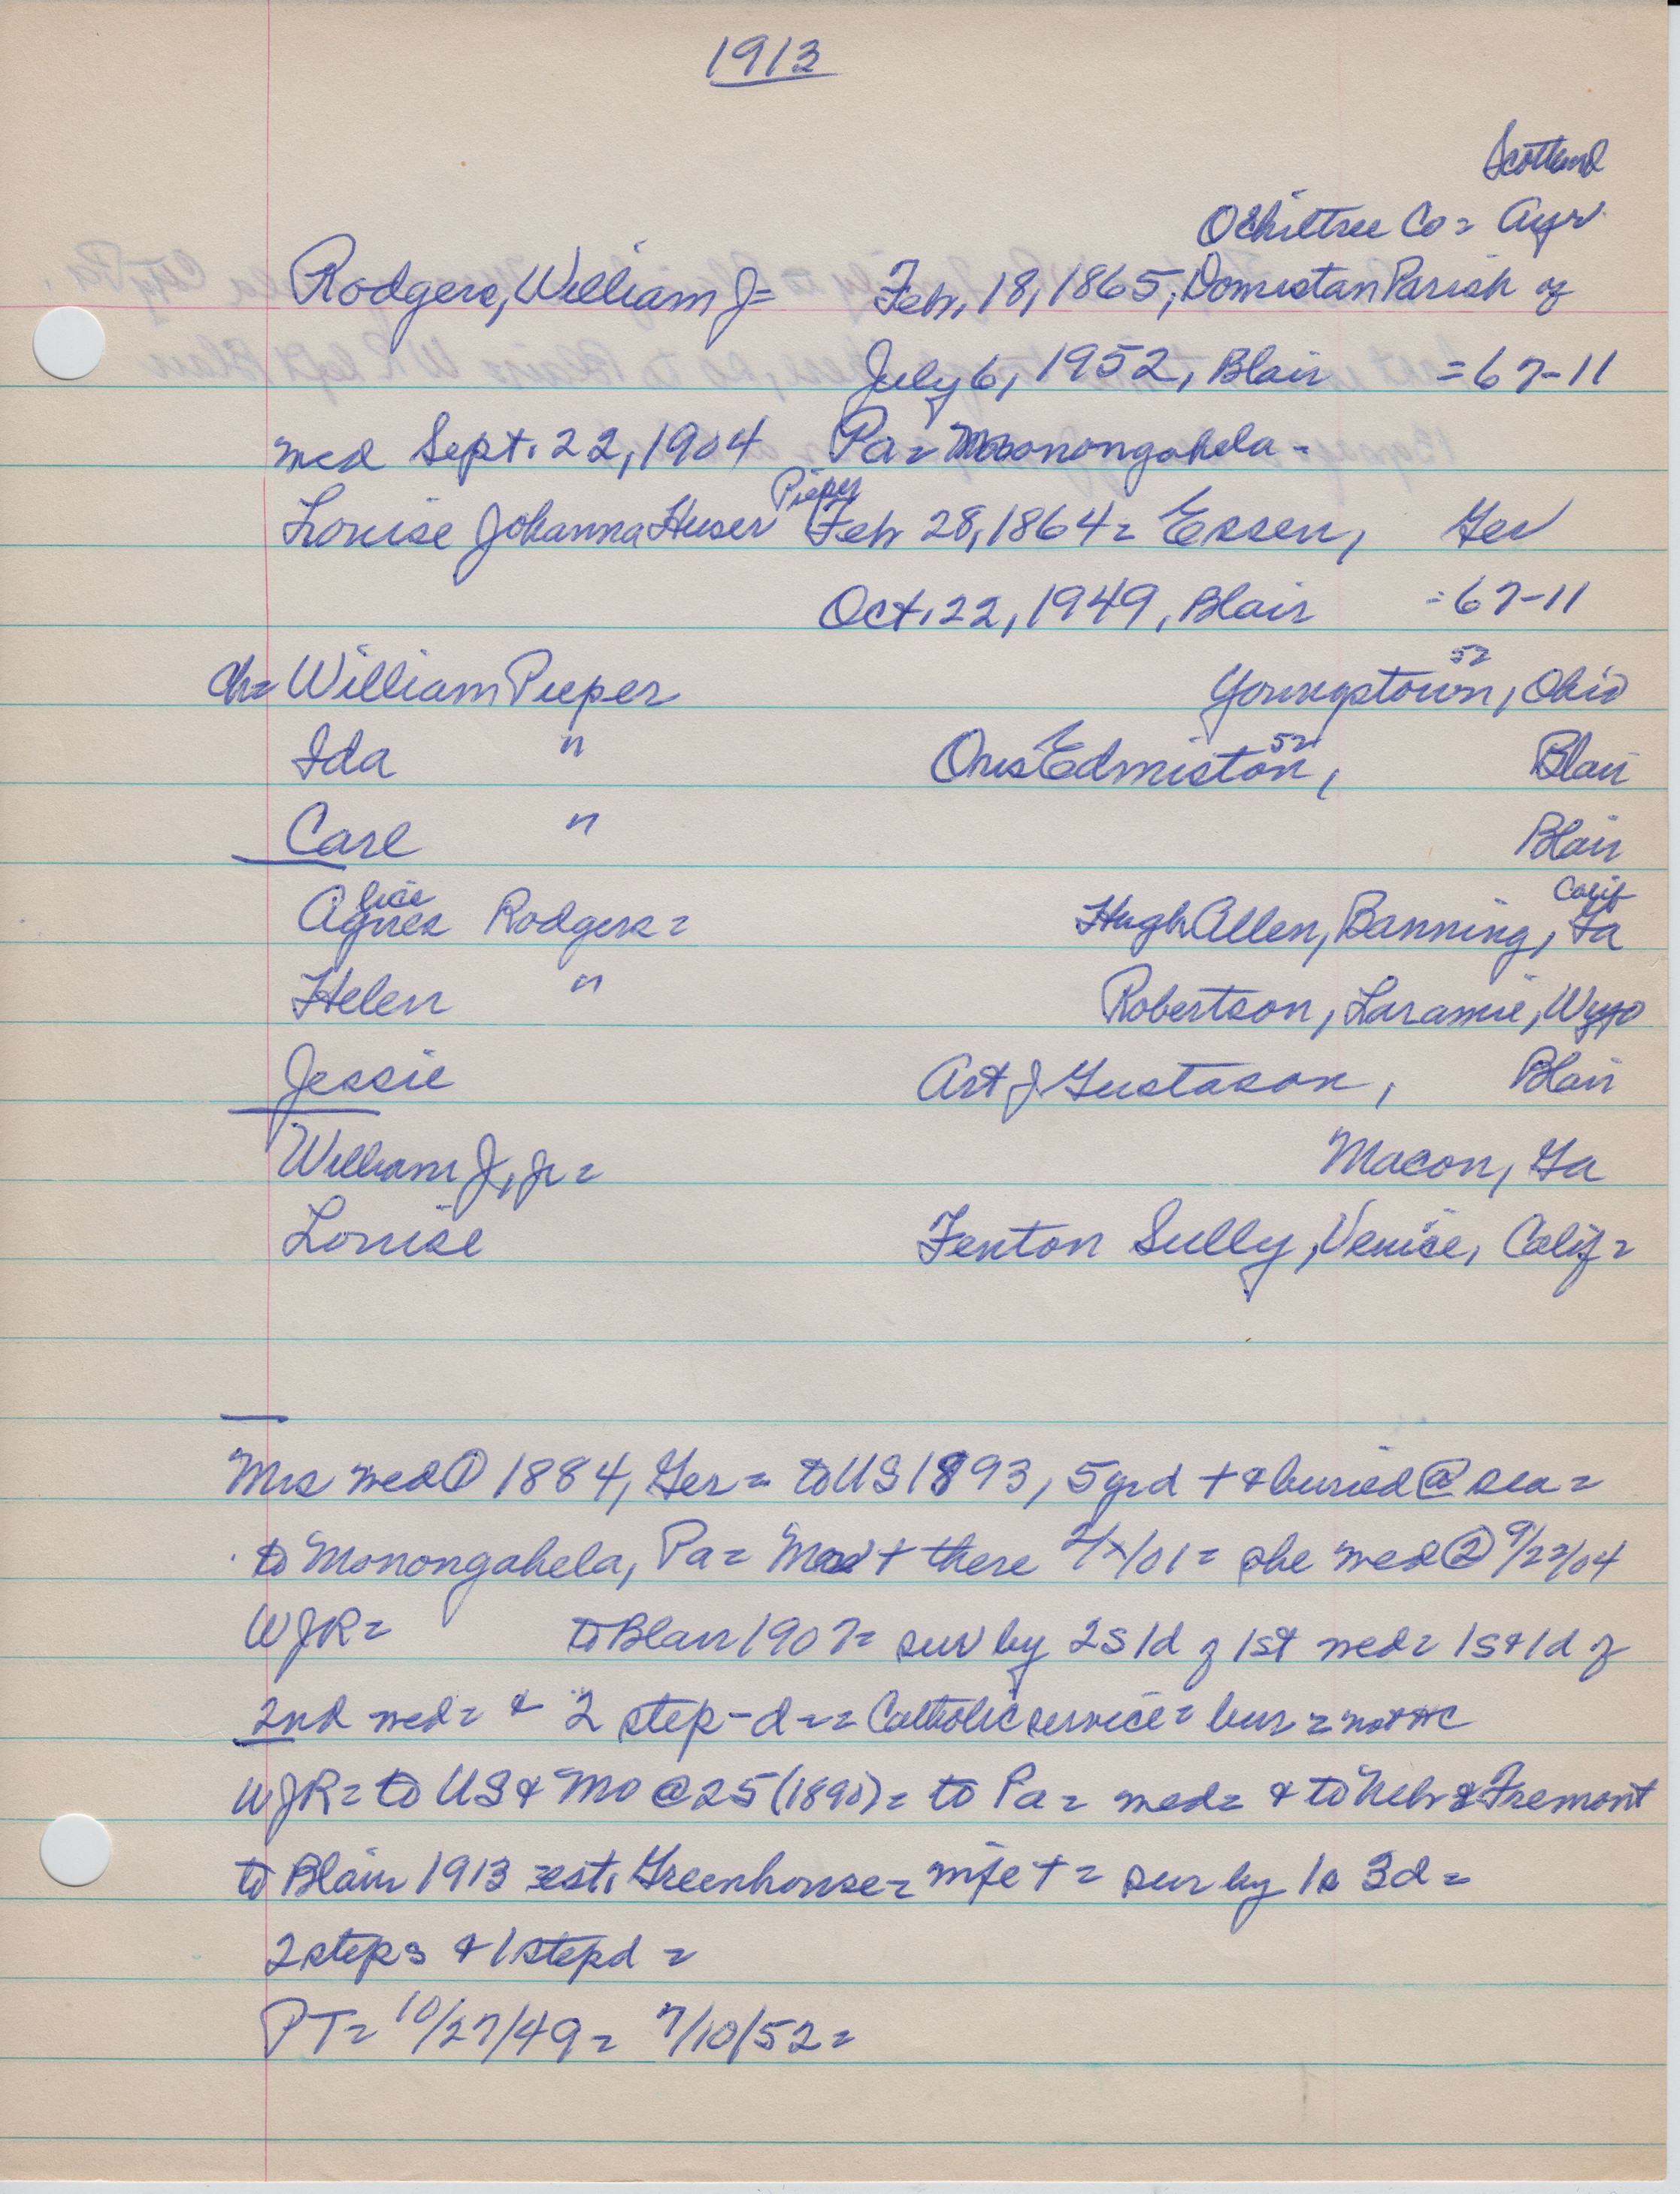 1913
Scotland
Ochiltree Co = Ayr
Rodgers, William J= Feb. 18, 1865, Domistan Parish of
July 6, 1952, Blair = 67-11
med Sept. 22, 1904 Pa= Monongahela -
Pieper
Louise Johanna Huser Feb 28, 1864 = Essen, Ger
Oct. 22, 1949, Blair = 67-11
52
ch= William Pieper Youngstown, Ohio
52
Ida " Oris Edmiston, Blair
Carl " Blair
lice Calif
Agnes Rodgers = Hugh Allen, Banning, Ga
Helen " Robertson, Laramie, Wyo
Jessie Art J Gustason, Blair
William J, jr = Macon, Ga
Louise Fenton Sully, Venice, Calif =
Mrs med ① 1884, Ger = to US 1893, 5 yr d + & buried @ sea =
to Monongahela, Pa = + there /01 = she med ② 9/22/04
WJR = to Blair 1907 = sur by 2s 1d of 1st med = 1s & 1d of
2nd med = & 2 step-d -= Catholic service = bur =
WJR = to US & Mo @ 25 (1890) = to Pa = med = & to Nebr & Fremont
to Blair 1913 = est. Greenhouse = wife + = sur by 1s 3d =
2 steps & 1 stepd =
PT = 10/27/49 = 7/10/52 =